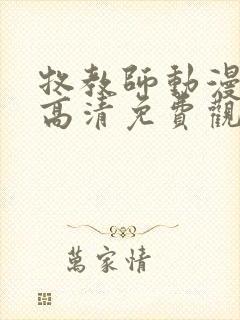 牧教師動漫
高清免費觀
萬家情